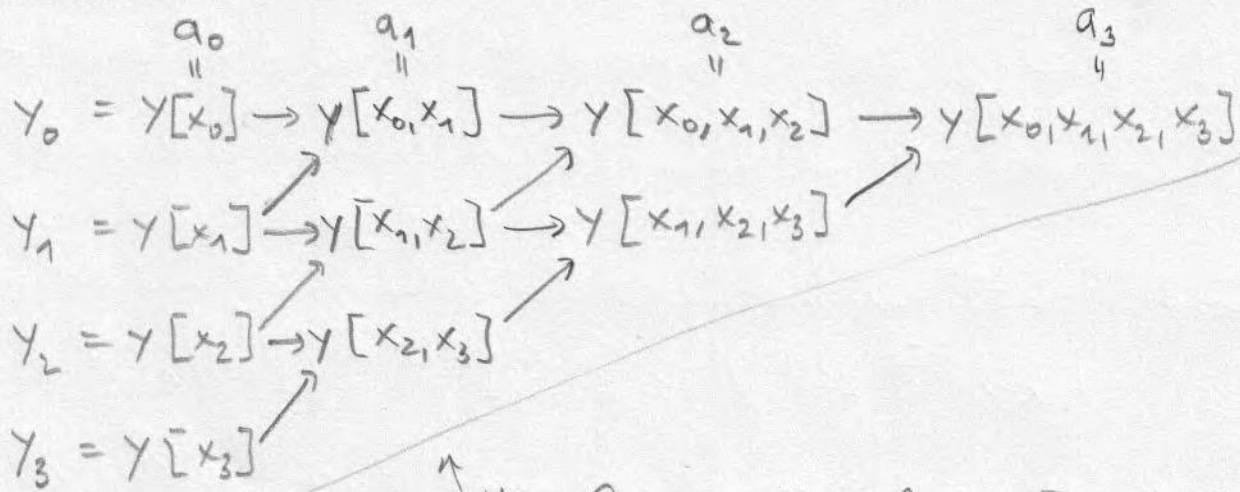 a₀ a₁ a₂ a₃
" " " "
y₀ = y[x₀] → y[x₀,x₁] → y[x₀,x₁,x₂] → y[x₀,x₁,x₂,x₃]
y₁ = y[x₁] → y[x₁,x₂] → y[x₁,x₂,x₃]
y₂ = y[x₂] → y[x₂,x₃]
y₃ = y[x₃]